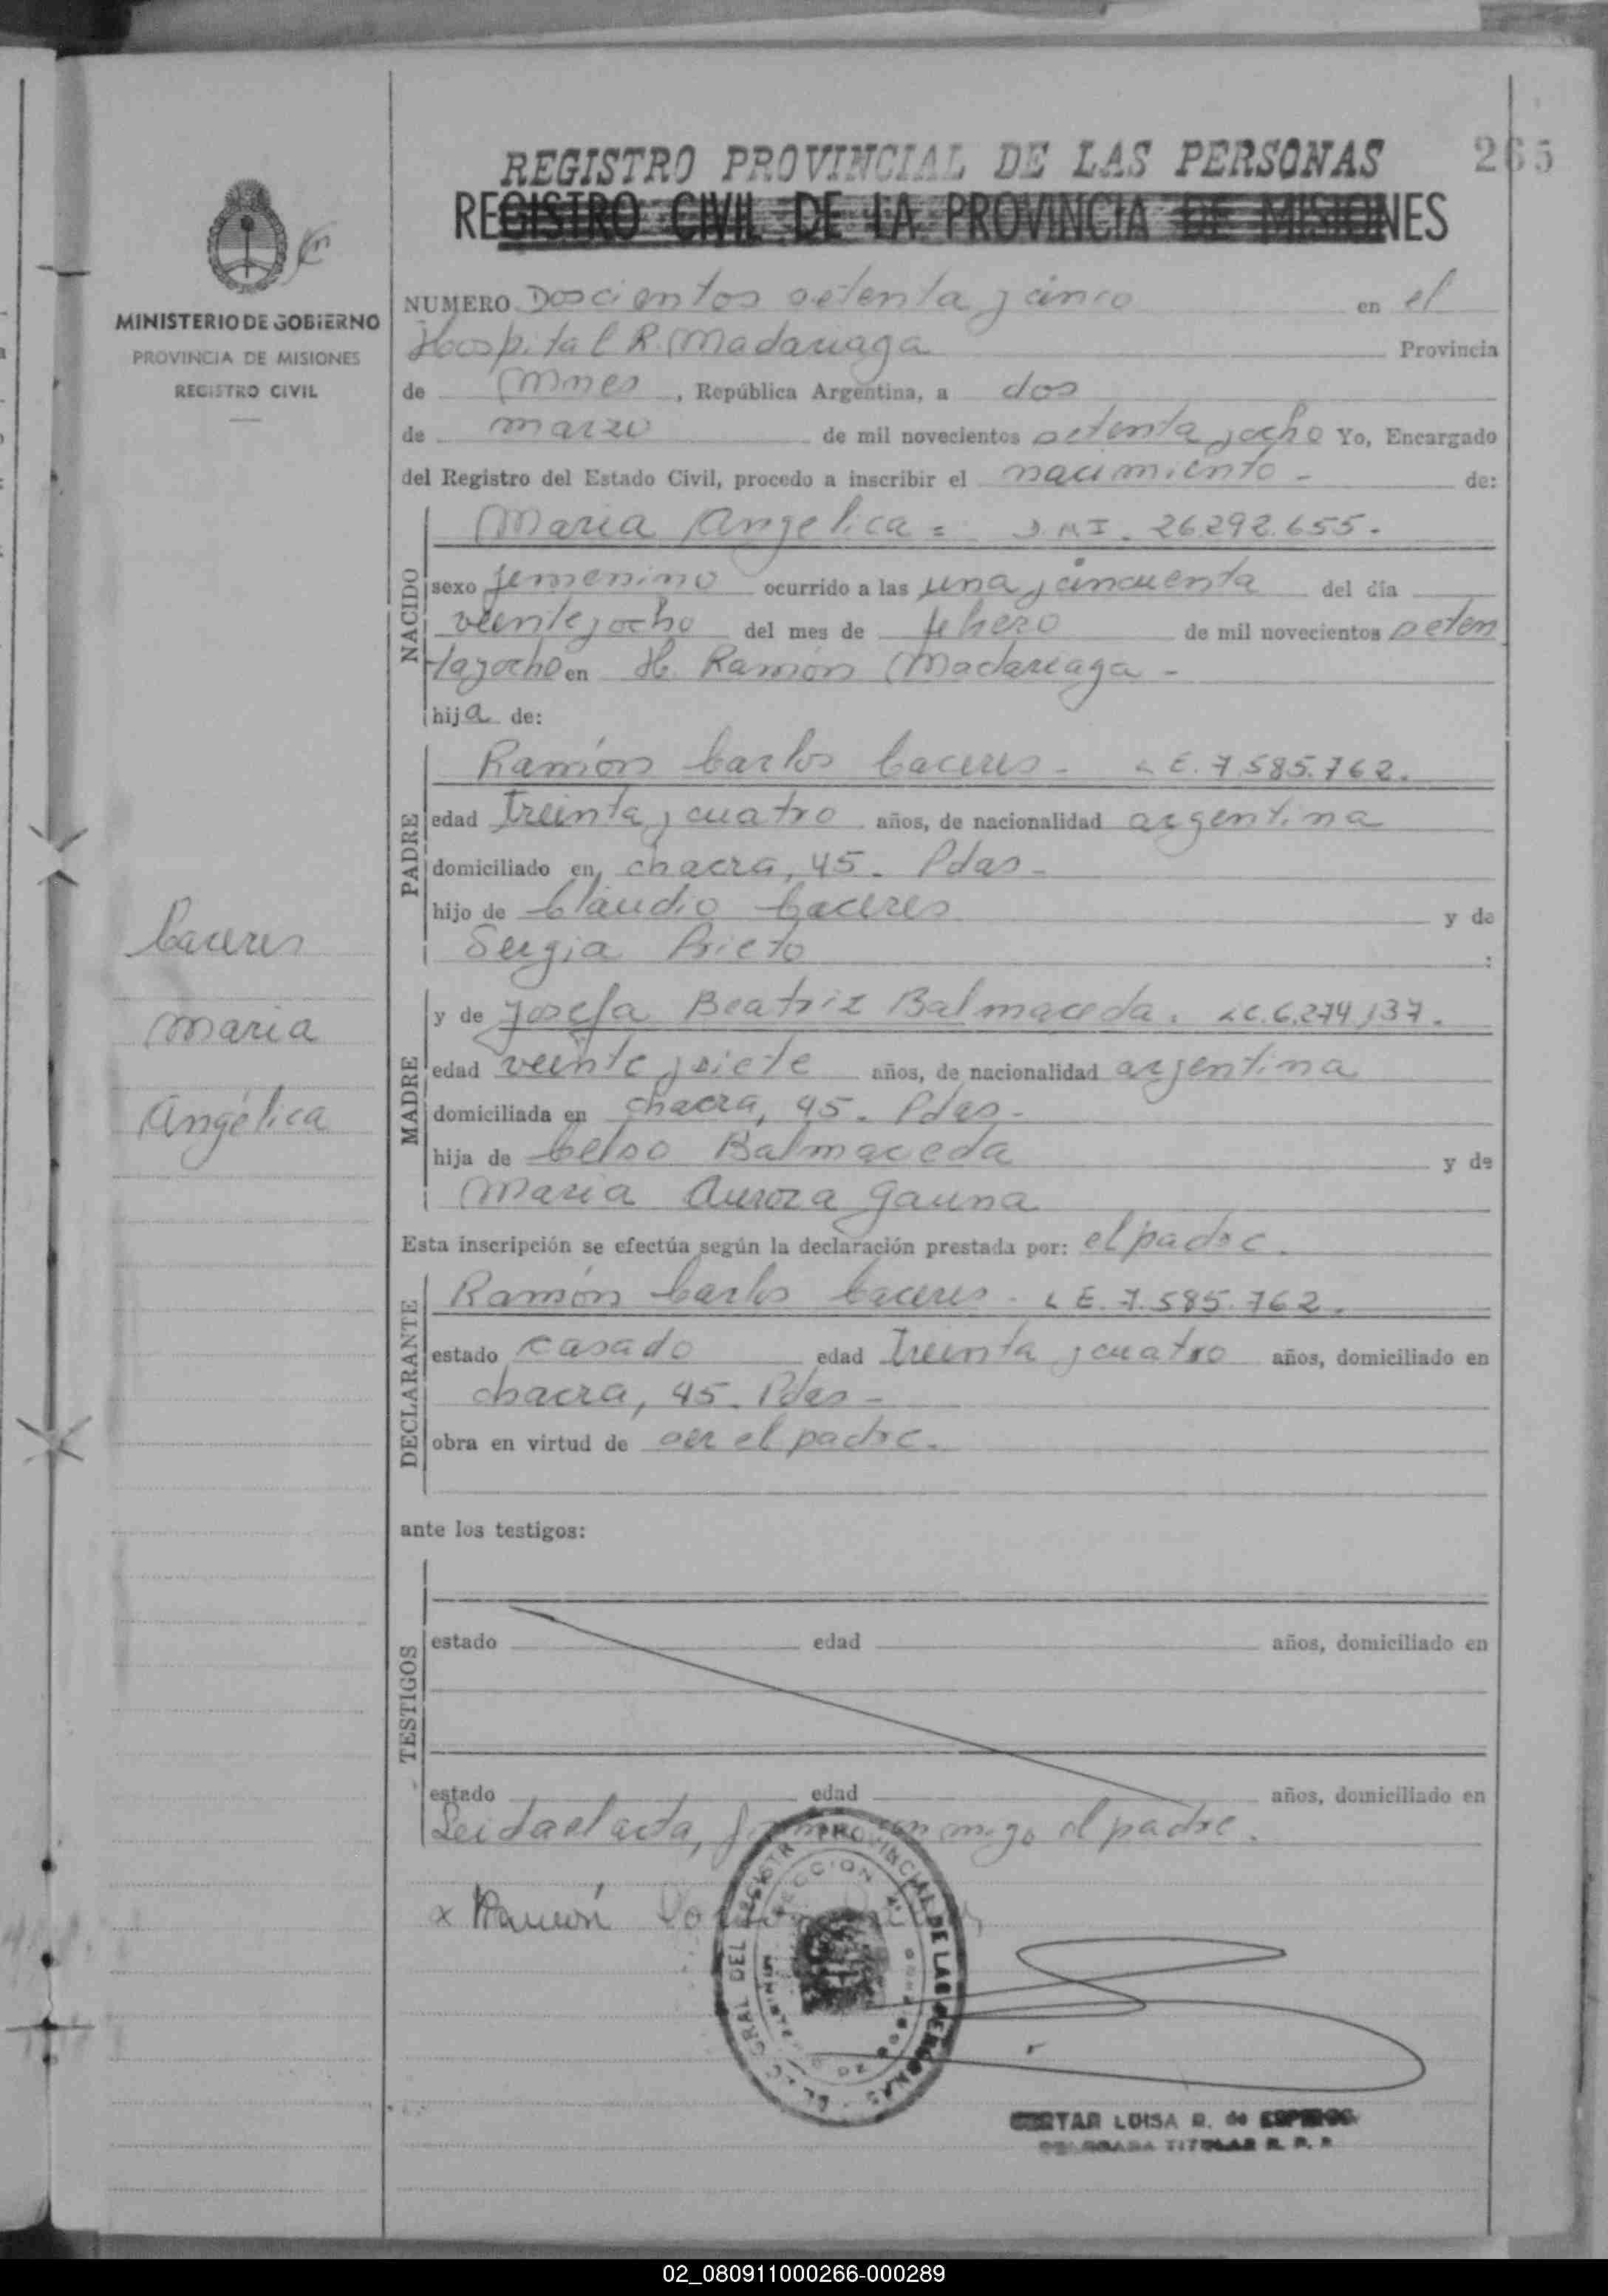 265
REGISTRO PROVINCIAL DE LAS PERSONAS
REGISTRO CIVIL DE LA PROVINCIA DE MISIONES
MINISTERIO DE GOBIERNO
PROVINCIA DE MISIONES
REGISTRO CIVIL
NUMERO Doscientos setenta y cinco en el
Hospital R. Madariaga Provincia
de Mnes, República Argentina, a dos
de marzo de mil novecientos setenta y ocho Yo, Encargado
del Registro del Estado Civil, procedo a inscribir el nacimiento - de:
NACIDO
Maria Angelica = D.N.I. 26.292.655.
sexo femenino ocurrido a las una y cincuenta del día
veinte y ocho del mes de febrero de mil novecientos seten
ta y ocho en H. Ramón Madariaga -
hija de:
PADRE
Ramón Carlos Caceres - L E. 7.585.762.
edad treinta y cuatro años, de nacionalidad argentina
domiciliado en chacra, 45. Pdas -
hijo de Claudio Caceres y de
Sergia Prieto :
MADRE
y de Josefa Beatriz Balmaceda. LC. 6.274.137.
edad veinte y siete años, de nacionalidad argentina
domiciliada en chacra, 45. Pdas -
hija de Celso Balmaceda y de
Maria Aurora Gauna
Caceres
Maria
Angélica
Esta inscripción se efectúa según la declaración prestada por: el padre.
DECLARANTE
Ramón Carlos Caceres - L E. 7.585.762.
estado casado edad treinta y cuatro años, domiciliado en
chacra, 45. Pdas -
obra en virtud de ser el padre.
ante los testigos:
TESTIGOS
estado edad años, domiciliado en
estado edad años, domiciliado en
Leida el acta, firma conmigo el padre.
x Ramón
GRAL DEL REGISTRO PROVINCIAL DE LAS PERSONAS
LUISA R. de
TITULAR R. P. P.
02_080911000266-000289